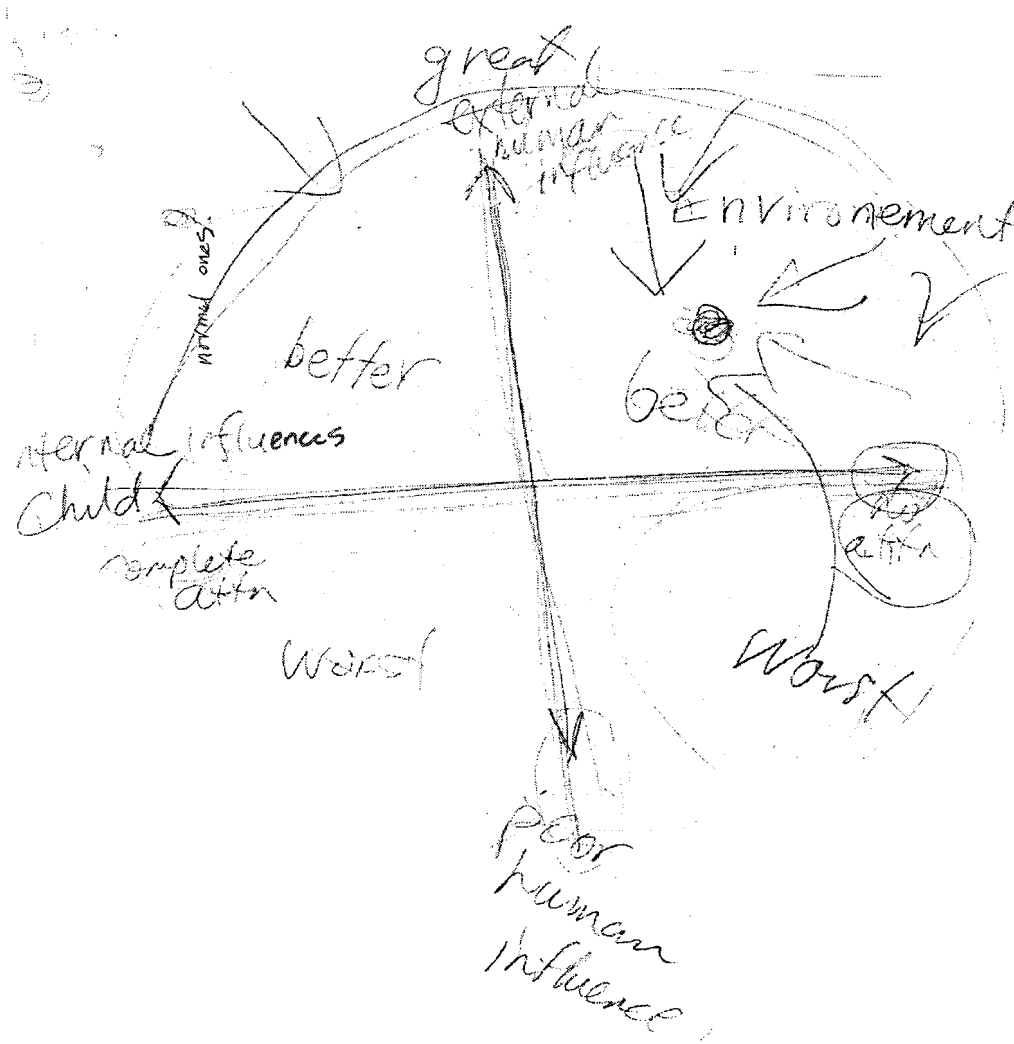 great
external
human
influence
Environement
normal ones
better
nternal influences
Child
complete
attn
no
attn
Worst
Worst
poor
human
influence